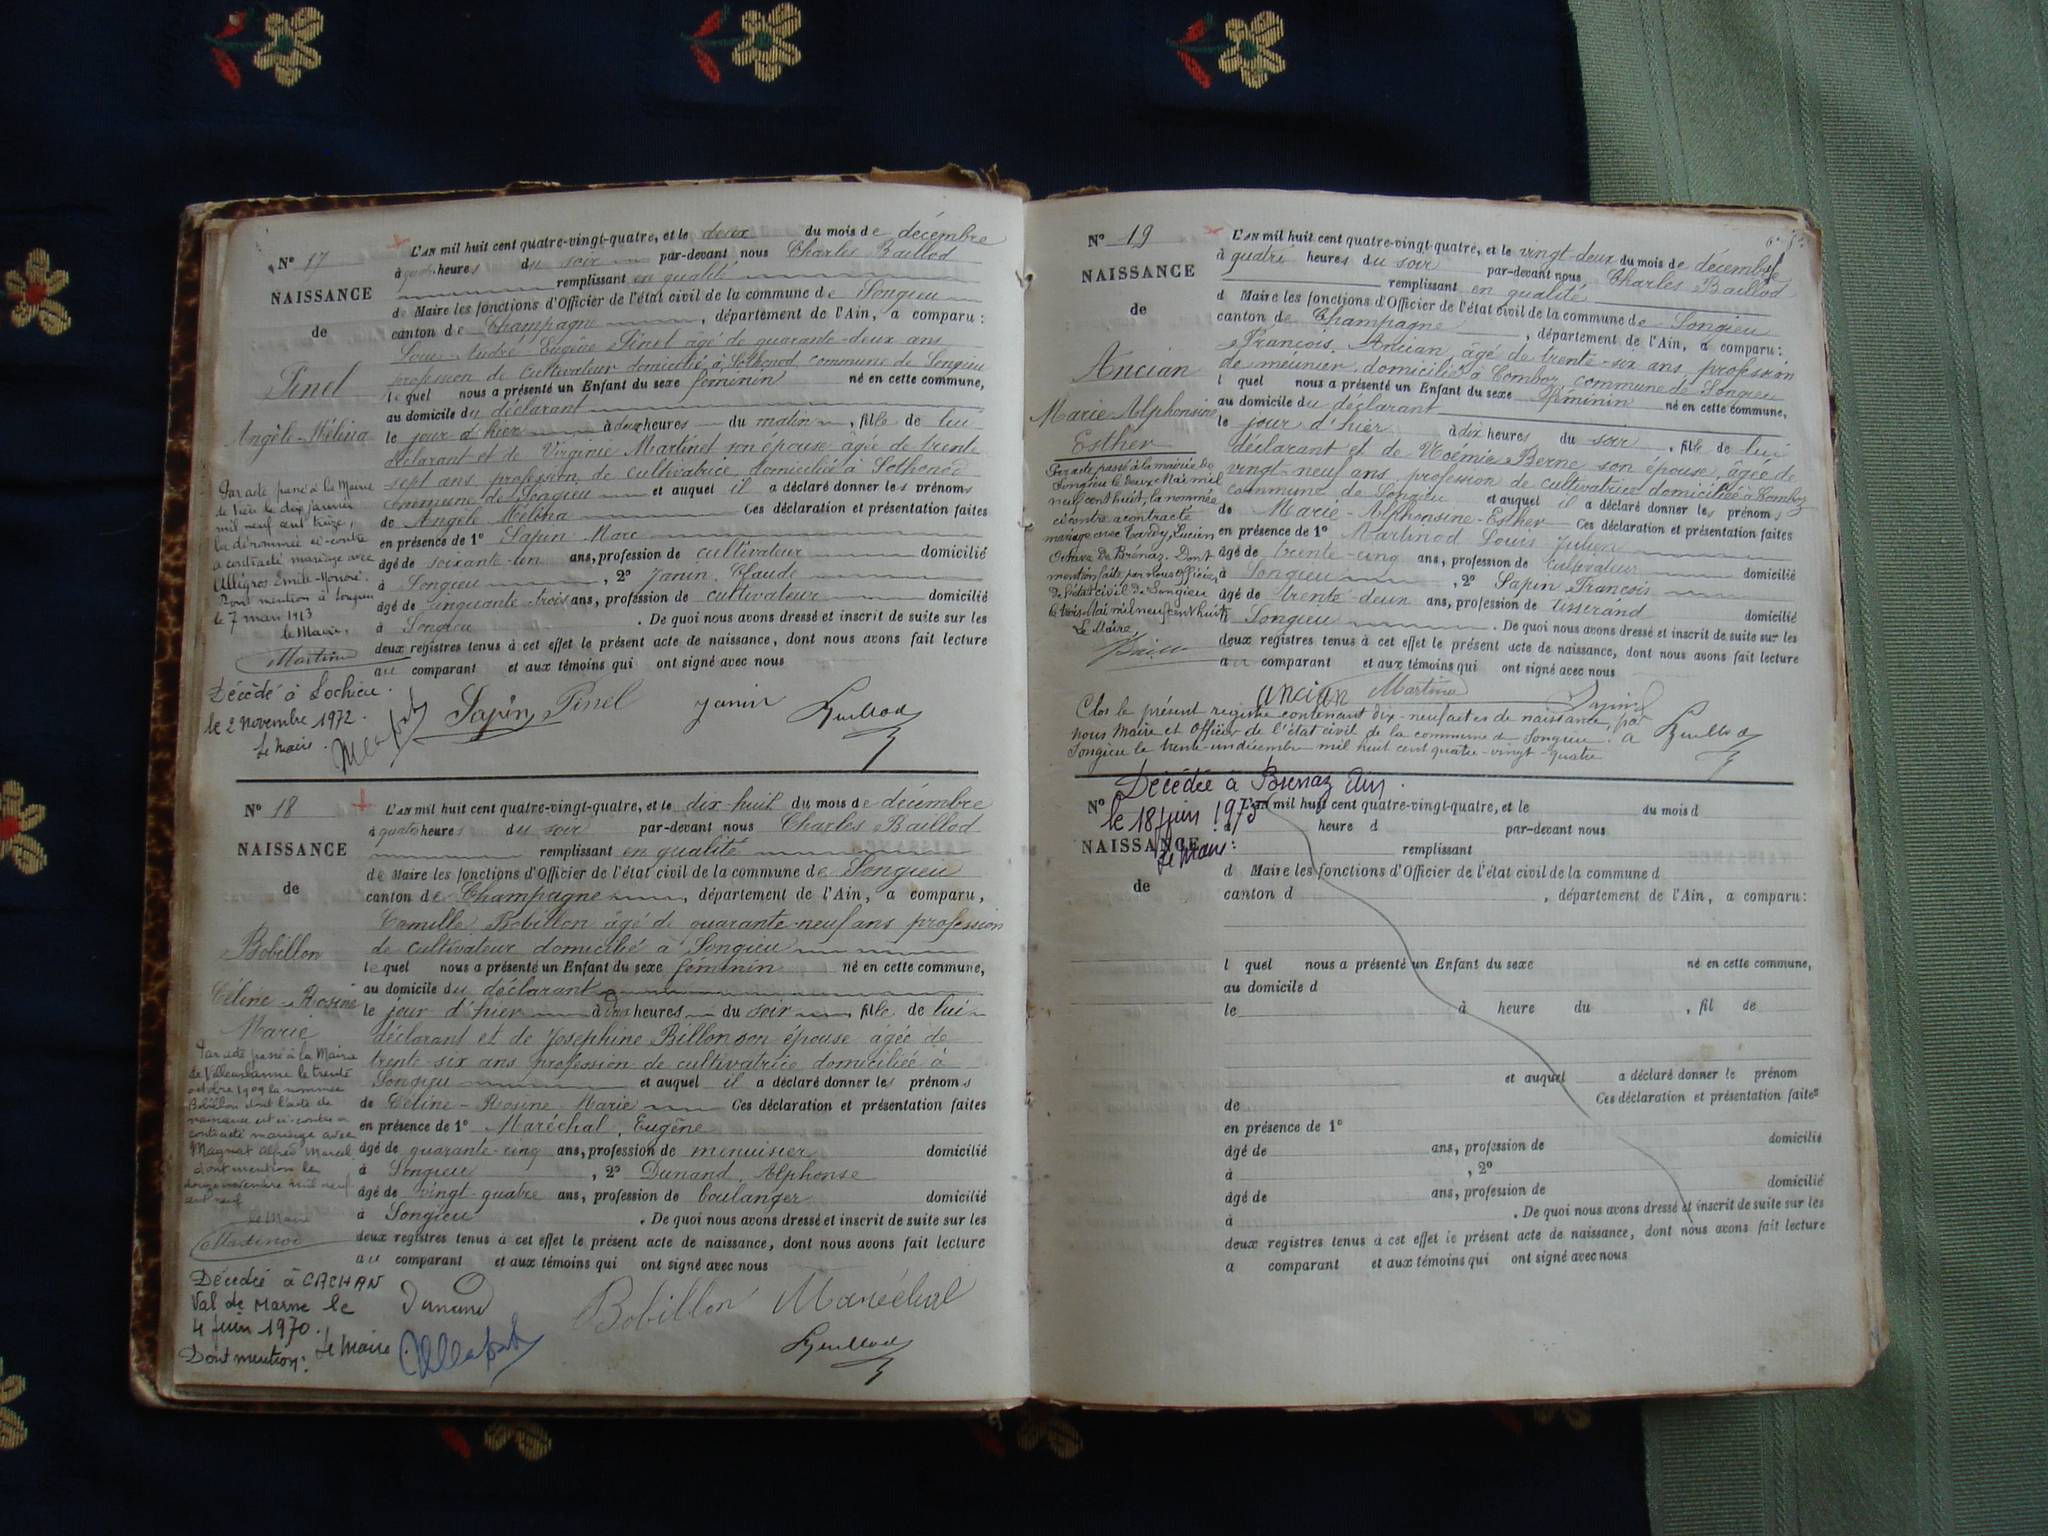 N° 17
NAISSANCE
de
Pinel
Angèle-Mélina
Par acte passé à la Mairie
de Vieu le dix janvier
mil neuf cent treize,
la dénommée ci-contre
a contracté mariage avec
Allégros Emile-Honoré.
Dont mention à Songieu
le 7 mars 1913
le Maire,
Martinod
Décédé à Lochieu.
le 2 novembre 1972.
Le Maire.
L'AN mil huit cent quatre-vingt-quatre, et le deux du mois de décembre
à quatre heures du soir par-devant nous Charles Baillod
remplissant en qualité
de Maire les fonctions d'Officier de l'état civil de la commune de Songieu
canton de Champagne, département de l'Ain, a comparu:
André Eugène Pinel âgé de quarante-deux ans
profession de cultivateur domicilié à Sothonod commune de Songieu
lequel nous a présenté un Enfant du sexe féminin né en cette commune,
au domicile du déclarant
le jour d'hier à deux heures du matin, fille de lui
déclarant et de Virginie Martinet son épouse âgée de trente
sept ans profession de cultivatrice domiciliée à Sothonod
commune de Songieu et auquel il a déclaré donner les prénoms
de Angèle Mélina Ces déclaration et présentation faites
en présence de 1° Sapin Marc
âgé de soixante-un ans, profession de cultivateur domicilié
à Songieu, 2° Janin Claude
âgé de cinquante-trois ans, profession de cultivateur domicilié
à Songieu. De quoi nous avons dressé et inscrit de suite sur les
deux registres tenus à cet effet le présent acte de naissance, dont nous avons fait lecture
au comparant et aux témoins qui ont signé avec nous
Sapin Pinel Janin Baillod
N° 18
NAISSANCE
de
Bobillon
Céline-Rosine
Marie
Par acte passé à la Mairie
de Villeurbanne le trente
octobre 1909 la nommée
Bobillon dont l'acte de
naissance est ci-contre a
contracté mariage avec
Magnat Alfred Marcel
dont mention le
douze novembre mil neuf
cent neuf
le Maire
Martinod
Décédée à CACHAN
Val de Marne le
4 juin 1970.
Dont mention: Le Maire
L'AN mil huit cent quatre-vingt-quatre, et le dix-huit du mois de décembre
à quatre heures du soir par-devant nous Charles Baillod
remplissant en qualité
de Maire les fonctions d'Officier de l'état civil de la commune de Songieu
canton de Champagne, département de l'Ain, a comparu,
Camille Bobillon âgé de quarante-neuf ans profession
de cultivateur domicilié à Songieu
lequel nous a présenté un Enfant du sexe féminin né en cette commune,
au domicile du déclarant
le jour d'hier à heures du soir fille de lui
déclarant et de Josephine Billon son épouse âgée de
trente-six ans profession de cultivatrice domiciliée à
Songieu et auquel il a déclaré donner les prénoms
de Céline-Rosine-Marie Ces déclaration et présentation faites
en présence de 1° Maréchal, Eugène
âgé de quarante-cinq ans, profession de menuisier domicilié
à Songieu, 2° Dunand, Alphonse
âgé de vingt-quatre ans, profession de boulanger domicilié
à Songieu. De quoi nous avons dressé et inscrit de suite sur les
deux registres tenus à cet effet le présent acte de naissance, dont nous avons fait lecture
au comparant et aux témoins qui ont signé avec nous
Dunand Bobillon Maréchal
Baillod
N° 19
NAISSANCE
de
Ancian
Marie-Alphonsine
Esther
Par acte passé à la mairie de
Songieu le deux Mai mil
neuf cent huit, la nommée
ci contre a contracté
mariage avec Tardy, Lucien
Octave de Brénaz. Dont
mention faite par nous officier
de l'état civil de Songieu
le trois Mai mil neuf cent huit
Le Maire,
L'AN mil huit cent quatre-vingt-quatre, et le vingt-deux du mois de décembre
à quatre heures du soir par-devant nous Charles Baillod
remplissant en qualité
d Maire les fonctions d'Officier de l'état civil de la commune de Songieu
canton de Champagne, département de l'Ain, a comparu:
François Ancian, âgé de trente-six ans, profession
de meûnier, domicilié à Comboz, commune de Songieu
l quel nous a présenté un Enfant du sexe féminin né en cette commune,
au domicile du déclarant
le jour d'hier à dix heures du soir, fille de lui
déclarant et de Noémie Berne son épouse, âgée de
vingt-neuf ans profession de cultivatrice domiciliée à Comboz
commune de Songieu et auquel il a déclaré donner les prénoms
de Marie-Alphonsine-Esther Ces déclaration et présentation faites
en présence de 1° Martinod Louis Julien
âgé de trente-cinq ans, profession de cultivateur domicilié
à Songieu, 2° Sapin François
âgé de trente-deux ans, profession de tisserand domicilié
à Songieu. De quoi nous avons dressé et inscrit de suite sur les
deux registres tenus à cet effet le présent acte de naissance, dont nous avons fait lecture
au comparant et aux témoins qui ont signé avec nous
ancian Martinod Sapin
Clos le présent registre contenant dix-neuf actes de naissance, par
nous Maire et Officier de l'état civil de la commune de Songieu. A
Songieu le trente-un décembre mil huit cent quatre-vingt-quatre
Baillod
Décédée à Brenaz Ain.
le 18 juin 1973
Le Maire:
N°
NAISSANCE
de
L'AN mil huit cent quatre-vingt-quatre, et le du mois d
à heure d par-devant nous
remplissant
d Maire les fonctions d'Officier de l'état civil de la commune d
canton d , département de l'Ain, a comparu:
l quel nous a présenté un Enfant du sexe né en cette commune,
au domicile d
le à heure du , fil de
et auquel a déclaré donner le prénom
de Ces déclaration et présentation faites
en présence de 1°
âgé de ans, profession de domicilié
à , 2°
âgé de ans, profession de domicilié
à . De quoi nous avons dressé et inscrit de suite sur les
deux registres tenus à cet effet le présent acte de naissance, dont nous avons fait lecture
a comparant et aux témoins qui ont signé avec nous